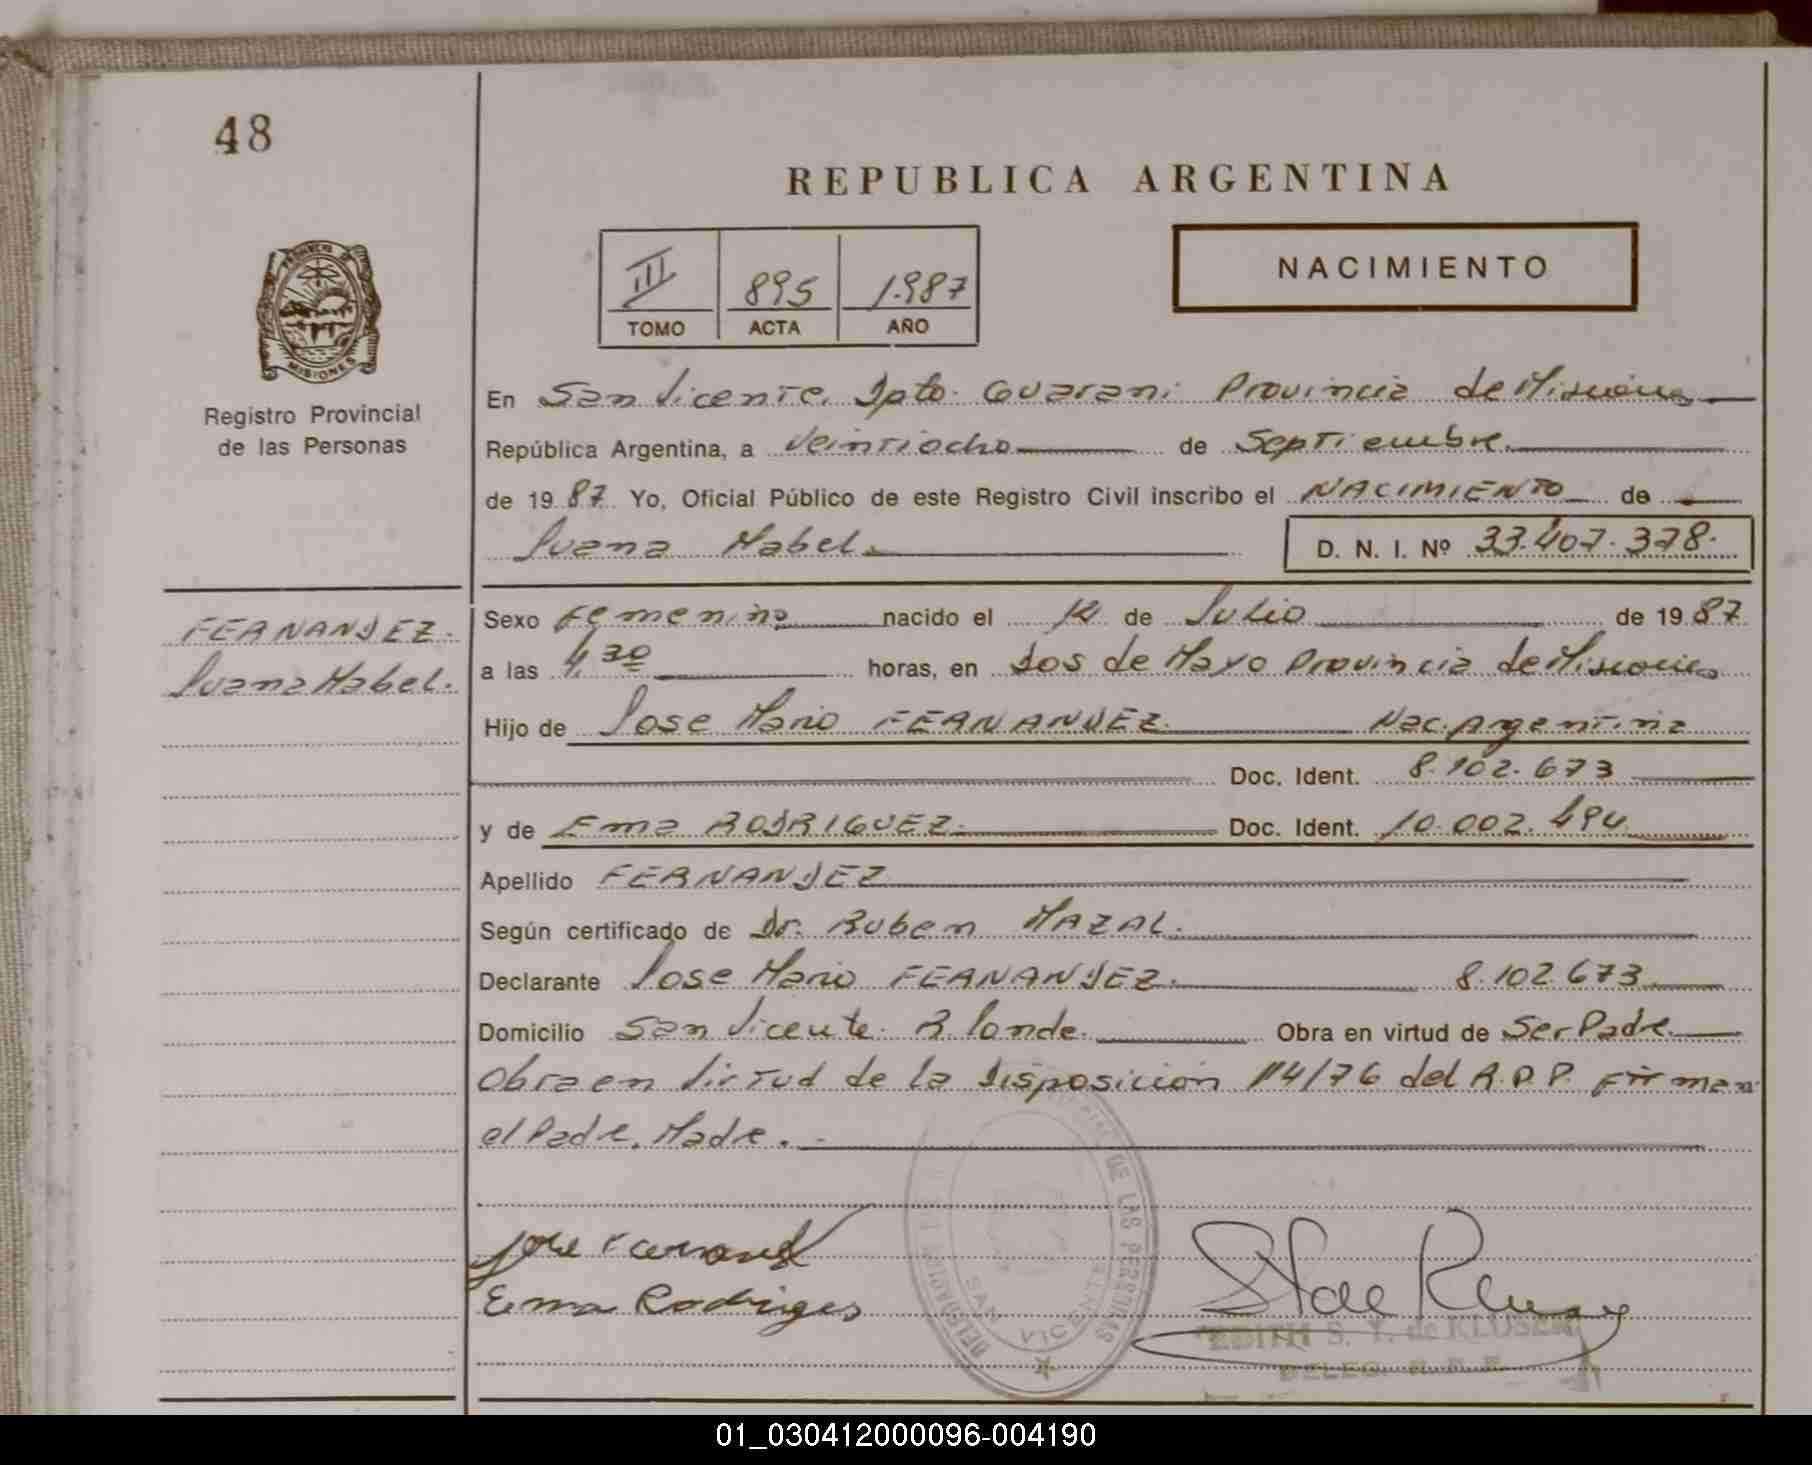 48
REPUBLICA ARGENTINA
III 895 1.987
TOMO ACTA AÑO
NACIMIENTO
MISIONES
Registro Provincial
de las Personas
En San Vicente, Dpto. Guarani Provincia de Misiones
República Argentina, a Veintiocho de Septiembre
de 1987 Yo, Oficial Público de este Registro Civil inscribo el NACIMIENTO de
Juana Mabel
D. N. I. Nº 33.407.378.
FERNANDEZ.
Juana Mabel.
Sexo Femenino nacido el 12 de Julio de 1987
a las 4,30 horas, en Dos de Mayo Provincia de Misiones
Hijo de Jose Mario FERNANDEZ Nac. Argentina
Doc. Ident. 8.102.673
y de Ema RODRIGUEZ Doc. Ident. 10.002.494
Apellido FERNANDEZ
Según certificado de Dr. Ruben MAZAL.
Declarante Jose Mario FERNANDEZ. 8.102.673
Domicilio San Vicente. Obra en virtud de Ser Padre
Obra en Virtud de la Disposicion 114/76 del R.P.P. Firman
el Padre, Madre.
Jose Fernand
Ema Rodriges
DE LAS PERSONAS
SAN VICENTE
EDITH S. T. de KLUSEN
DELEG. R. P. P.
01_030412000096-004190